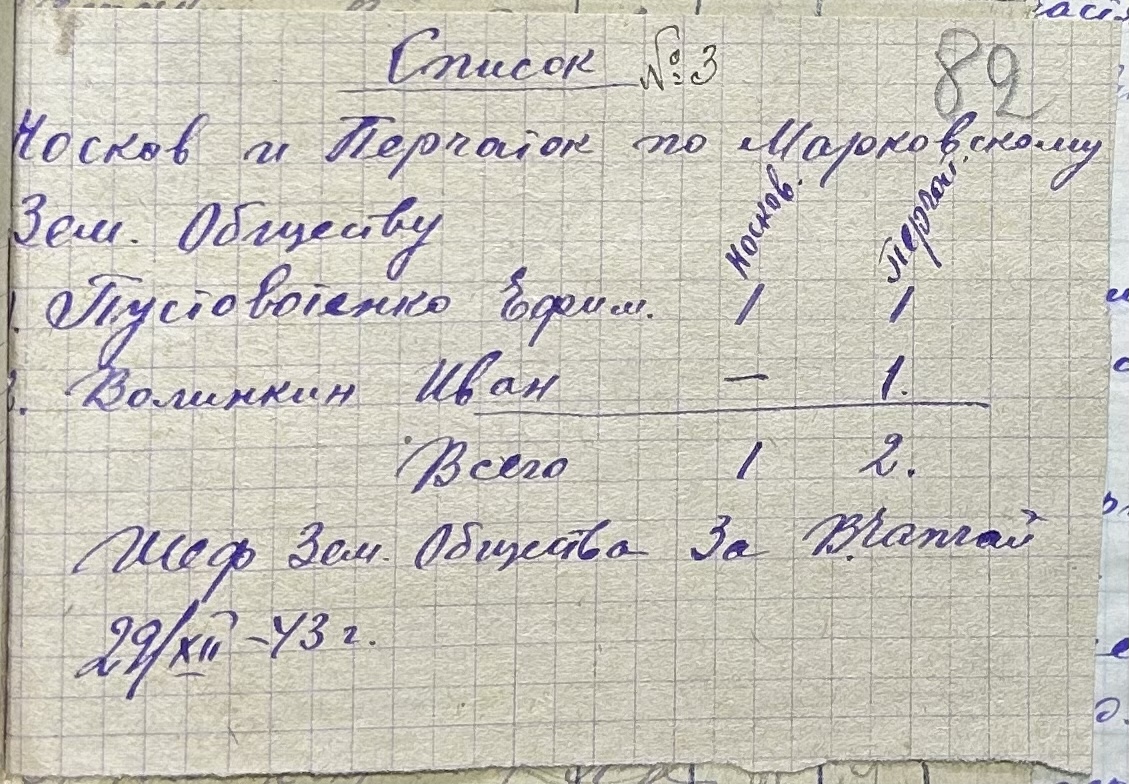 Список №3
82
Носков и Перчаток по Марковскому
Зем. Обществу Носков. Перчат.
1. Пустовотенко Ефим. 1 1
2. Волинкин Иван — 1.
Всего 1 2.
Шеф Зем. Общества За
29/XII -43 г.